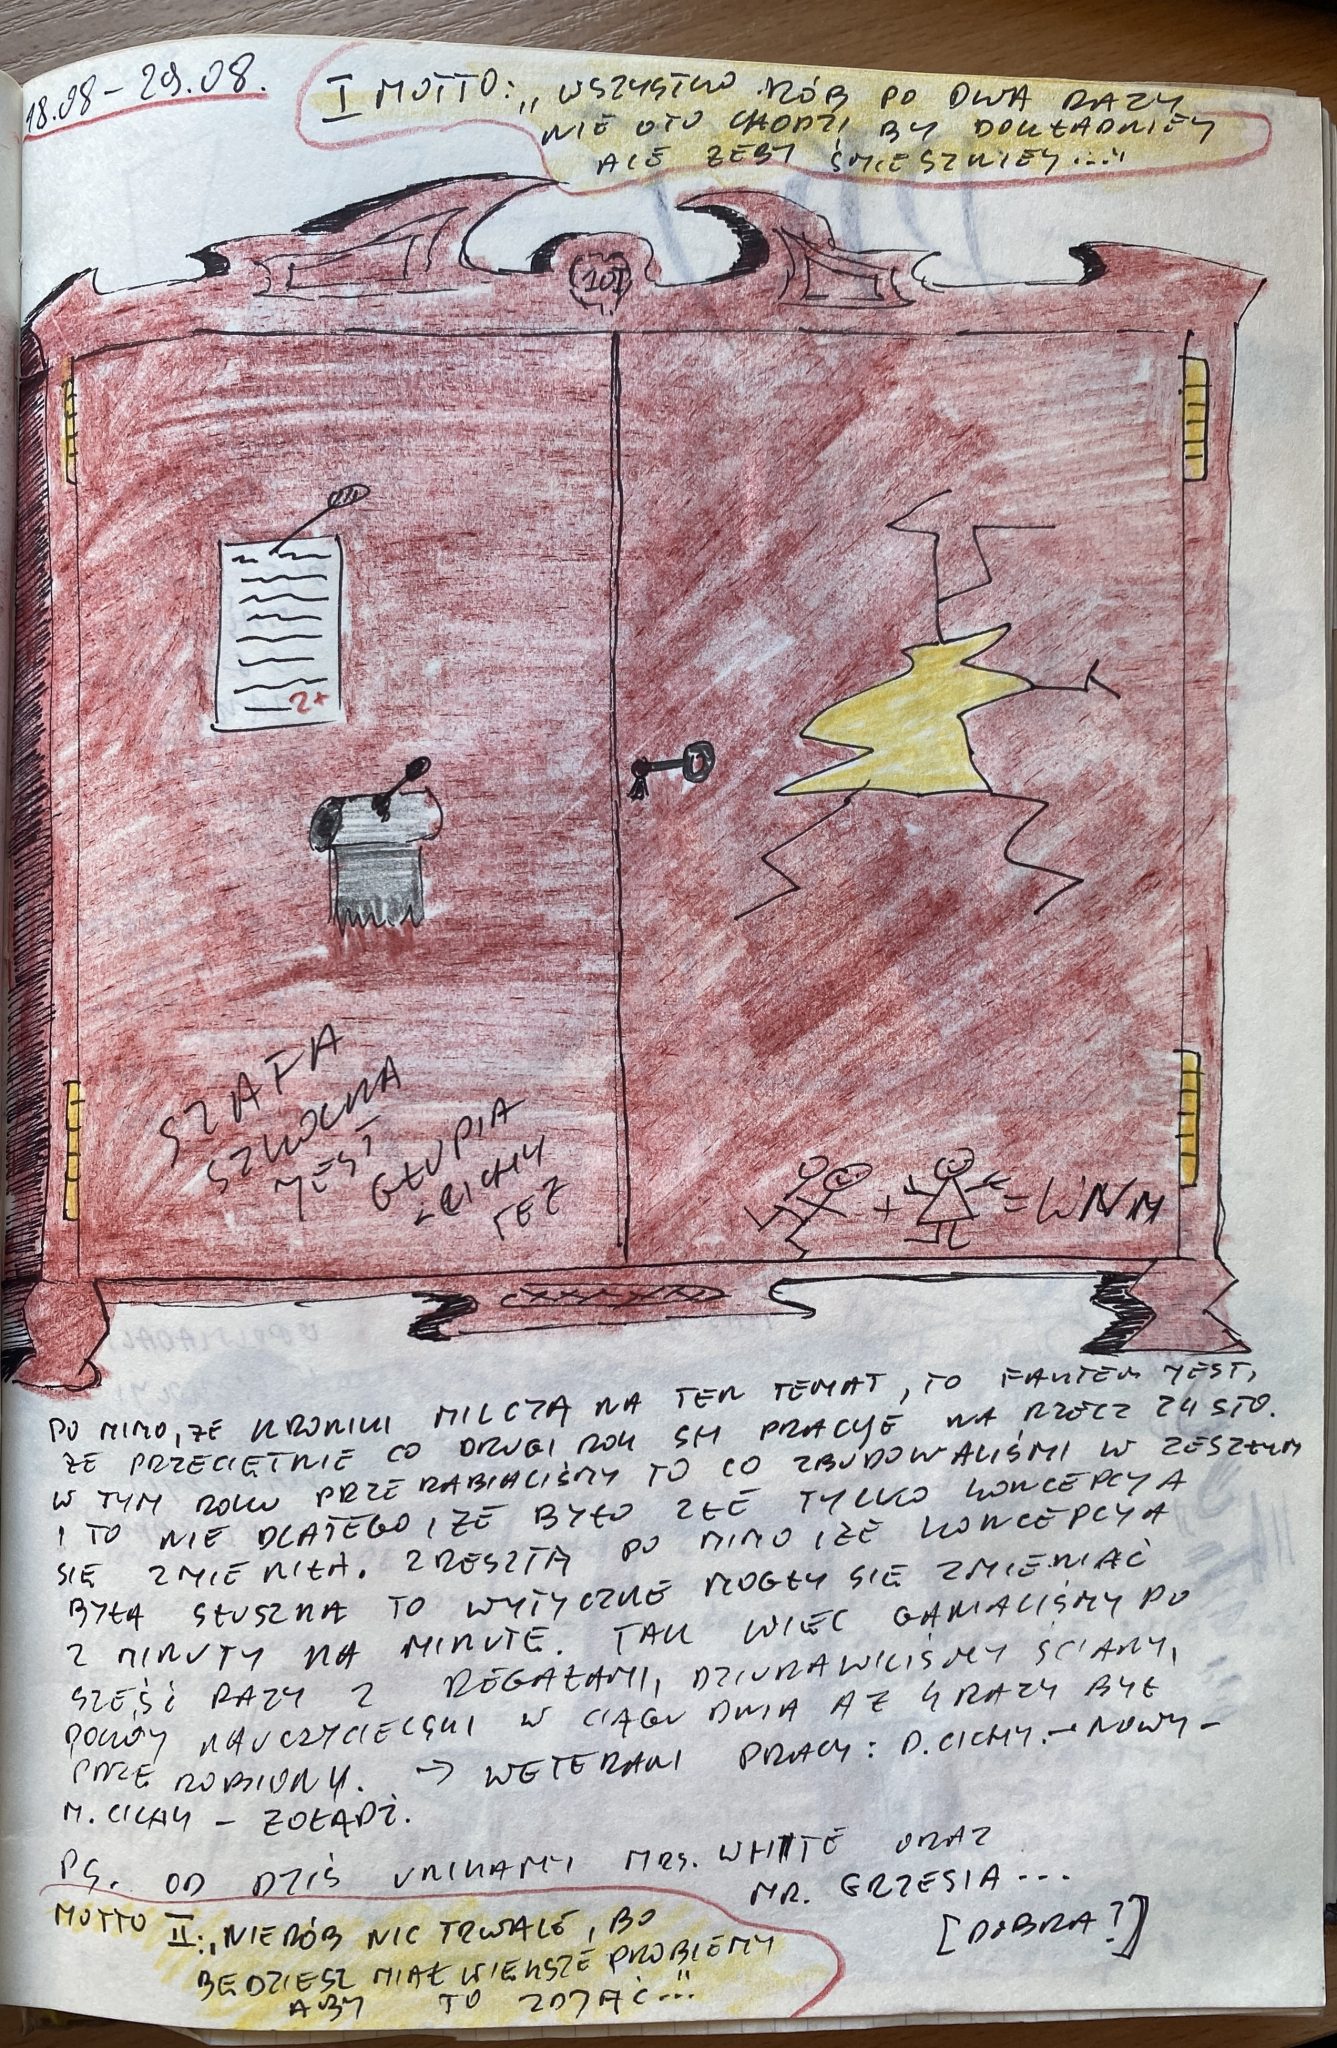 18.08 - 29.08.
I MOTTO: „WSZYSTKO RÓB PO DWA RAZY
NIE OTO CHODZI BY DOKŁADNIEY
ALE ŻEBY ŚMIESZNIEY..."
101
2+
SZAFA
SZKOLNA
JEST
GŁUPIA
CICHY
TEŻ
+ = WNM
PO MIMO, ŻE KRONIKI MILCZĄ NA TEN TEMAT, TO FAKTEM YEST,
ŻE PRZECIĘTNIE CO DRUGI ROK SM PRACYJE NA RZECZ ZHSTO.
W TYM ROKU PRZERABIALIŚMY TO CO ZBUDOWALIŚMI W ZESZŁYM
I TO NIE DLATEGO IŻE BYŁO ZŁE TYLKO KONCEPCYA
SIĘ ZMIENIŁA. ZRESZTĄ PO MIMO IŻE KONCEPCYA
BYŁA SŁUSZNA TO WYTYCZNE MOGŁY SIĘ ZMIENIAĆ
Z MINUTY NA MINUTE. TAK WIEC GANIALIŚMY PO
SZEŚĆ RAZY Z REGAŁAMI, DZIURAWILIŚMY ŚCIANY,
POKÓY NAUCZYCIELSKI W CIĄGU DNIA AŻ 4 RAZY BYŁ
PRZEROBIONY. → WETERANI PRACY: D. CICHY. - NOWY -
M. CICHY - ŻOŁĄDŹ.
PS. OD DZIŚ UNIKAMY MRS. WHITE ORAZ
MR. GRZESIA...
[DOBRA?]
MOTTO II: „NIERÓB NIC TRWALE, BO
BĘDZIESZ MIAŁ WIEKSZE PROBLEMY
ABY TO ZDJĄĆ..."